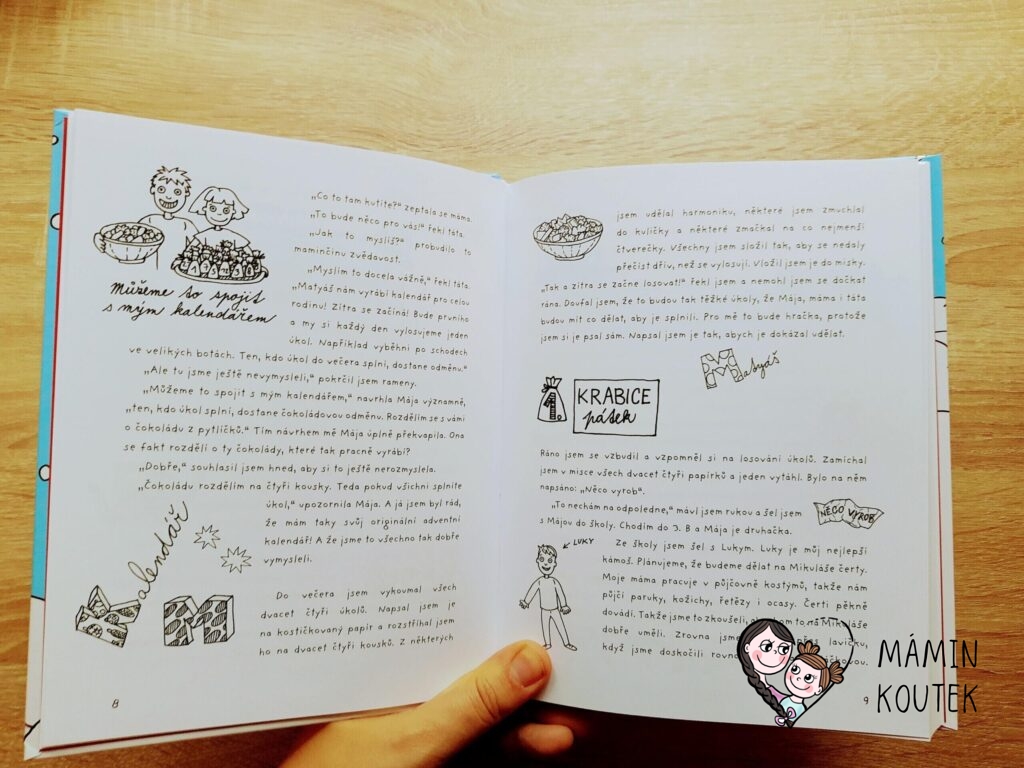 „Co to tam kutíte?“ zeptala se máma.
„To bude něco pro vás!“ řekl táta.
„Jak to myslíš?“ probudilo to
maminčinu zvědavost.
„Myslím to docela vážně,“ řekl táta.
„Matyáš nám vyrábí kalendář pro celou
rodinu! Zítra se začíná! Bude prvního
a my si každý den vylosujeme jeden
úkol. Například vyběhni po schodech
ve velikých botách. Ten, kdo úkol do večera splní, dostane odměnu.“
Můžeme to spojit
s mým kalendářem
„Ale tu jsme ještě nevymysleli,“ pokrčil jsem rameny.
„Můžeme to spojit s mým kalendářem,“ navrhla Mája významně,
„ten, kdo úkol splní, dostane čokoládovou odměnu. Rozdělím se s vámi
o čokoládu z pytlíčků.“ Tím návrhem mě Mája úplně překvapila. Ona
se fakt rozdělí o ty čokolády, které tak pracně vyrábí?
„Dobře,“ souhlasil jsem hned, aby si to ještě nerozmyslela.
„Čokoládu rozdělím na čtyři kousky. Teda pokud všichni splníte
úkol,“ upozornila Mája. A já jsem byl rád,
že mám taky svůj originální adventní
kalendář! A že jsme to všechno tak dobře
vymysleli.
Kalendář
M
Do večera jsem vykoumal všech
dvacet čtyři úkolů. Napsal jsem je
na kostičkovaný papír a rozstříhal jsem
ho na dvacet čtyři kousků. Z některých
8
jsem udělal harmoniku, některé jsem zmuchlal
do kuličky a některé zmačkal na co nejmenší
čtverečky. Všechny jsem složil tak, aby se nedaly
přečíst dřív, než se vylosují. Vložil jsem je do misky.
„Tak a zítra se začne losovat!“ řekl jsem a nemohl jsem se dočkat
rána. Doufal jsem, že to budou tak těžké úkoly, že Mája, máma i táta
budou mít co dělat, aby je splnili. Pro mě to bude hračka, protože
jsem si je psal sám. Napsal jsem je tak, abych je dokázal udělat.
Matyáš
1
KRABICE
pátek
Ráno jsem se vzbudil a vzpomněl si na losování úkolů. Zamíchal
jsem v misce všech dvacet čtyři papírků a jeden vytáhl. Bylo na něm
napsáno: „Něco vyrob“.
„To nechám na odpoledne,“ mávl jsem rukou a šel jsem
s Májou do školy. Chodím do 3. B a Mája je druhačka.
NĚCO VYROB
LUKY
Ze školy jsem šel s Lukym. Luky je můj nejlepší
kámoš. Plánujeme, že budeme dělat na Mikuláše čerty.
Moje máma pracuje v půjčovně kostýmů, takže nám
půjčí paruky, kožichy, řetězy i ocasy. Čerti pěkně
dovádí. Takže jsme to zkoušeli, to na Mikuláše
dobře uměli. Zrovna jsme přes lavičku,
když jsme doskočili
9
MÁMIN
KOUTEK